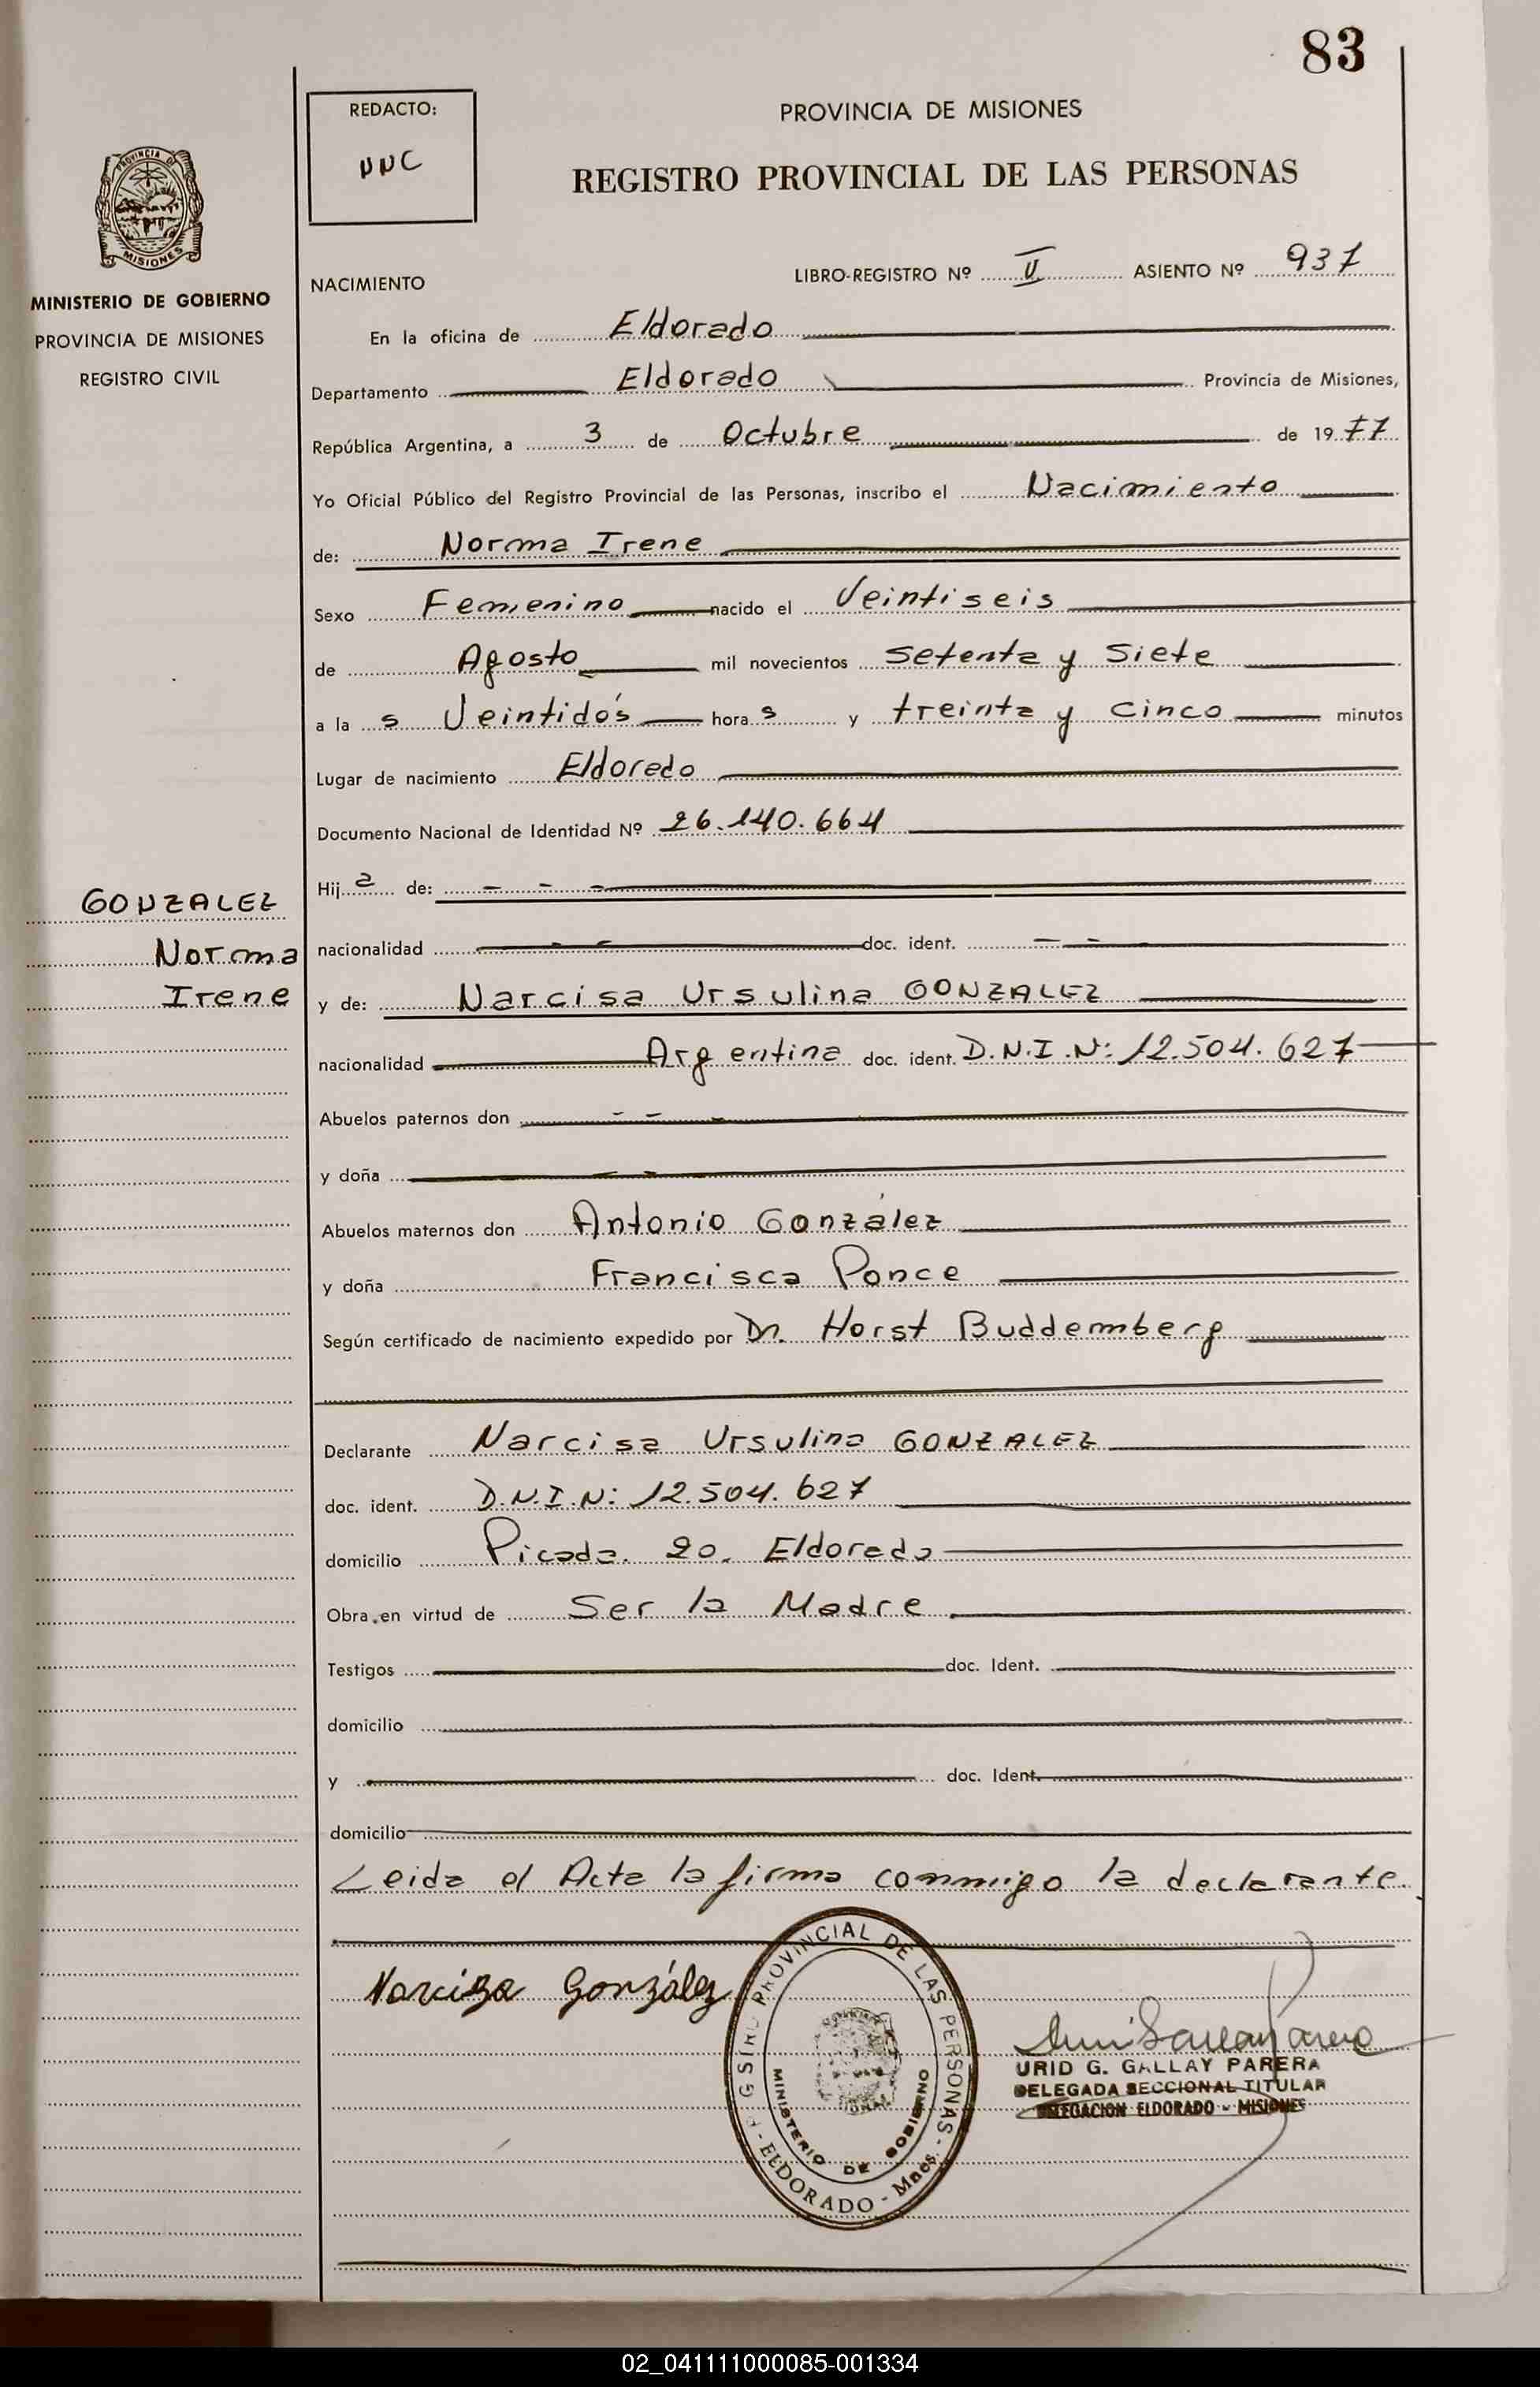 83
REDACTO:
NNC
PROVINCIA DE MISIONES
REGISTRO PROVINCIAL DE LAS PERSONAS
PROVINCIA DE
MISIONES
MINISTERIO DE GOBIERNO
PROVINCIA DE MISIONES
REGISTRO CIVIL
NACIMIENTO
LIBRO-REGISTRO Nº II ASIENTO Nº 937
En la oficina de Eldorado
Departamento Eldorado Provincia de Misiones,
República Argentina, a 3 de Octubre de 1977
Yo Oficial Público del Registro Provincial de las Personas, inscribo el Nacimiento
de: Norma Irene
Sexo Femenino nacido el Veintiseis
de Agosto mil novecientos Setenta y Siete
a la s Veintidós hora s y treinta y cinco minutos
Lugar de nacimiento Eldorado
Documento Nacional de Identidad Nº 26.140.664
Hij a de: - - -
GONZALEZ
Norma
Irene
nacionalidad - - doc. ident. - -
y de: Narcisa Ursulina GONZALEZ
nacionalidad Argentina doc. ident. D.N.I.N: 12.504.627
Abuelos paternos don - - -
y doña - -
Abuelos maternos don Antonio González
y doña Francisca Ponce
Según certificado de nacimiento expedido por Dr. Horst Buddemberg
Declarante Narcisa Ursulina GONZALEZ
doc. ident. D.N.I.N: 12.504.627
domicilio Picada 20. Eldorado
Obra en virtud de Ser la Madre
Testigos doc. Ident.
domicilio
y doc. Ident.
domicilio
Leida el Acta la firma conmigo la declarante.
Narcisa González
PROVINCIAL DE LAS PERSONAS - ELDORADO - Mnes.
MINISTERIO DE GOBIERNO
URID G. GALLAY PARERA
DELEGADA SECCIONAL TITULAR
DELEGACION ELDORADO - MISIONES
02_041111000085-001334